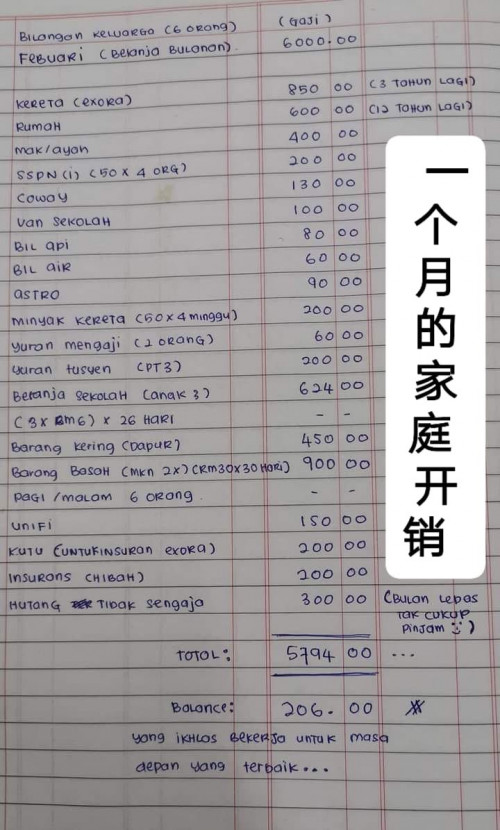 Bilangan Keluarga (6 orang) (Gaji)
Febuari (Belanja Bulanan). 6000.00
Kereta (exora) 850 00 (3 Tahun Lagi)
Rumah 600 00 (12 Tahun Lagi)
mak/ayah 400 00
SSPN(i) (50 x 4 ORG) 200 00
Coway 130 00
Van Sekolah 100 00
Bil api 80 00
Bil air 60 00
Astro 90 00
minyak kereta (50x4 minggu) 200 00
yuran mengaji (2 orang) 60 00
yuran tusyen (PT3) 200 00
Belanja Sekolah (anak 3) 624 00
(3 x RM6) x 26 HARI - -
Barang Kering (Dapur) 450 00
Barang Basah (mkn 2x) (RM30x30 Hari) 900 00
Pagi /malam 6 orang - -
unifi 150 00
Kutu (untuk insuran exora) 200 00
Insurans (Hibah) 200 00
Hutang Tidak sengaja 300 00 (Bulan Lepas
Tak cukup
Pinjam )
TOTAL: 5794 00 ...
Balance: 206. 00
yang ikhlas Bekerja untuk masa
depan yang terbaik...
一个月的家庭开销